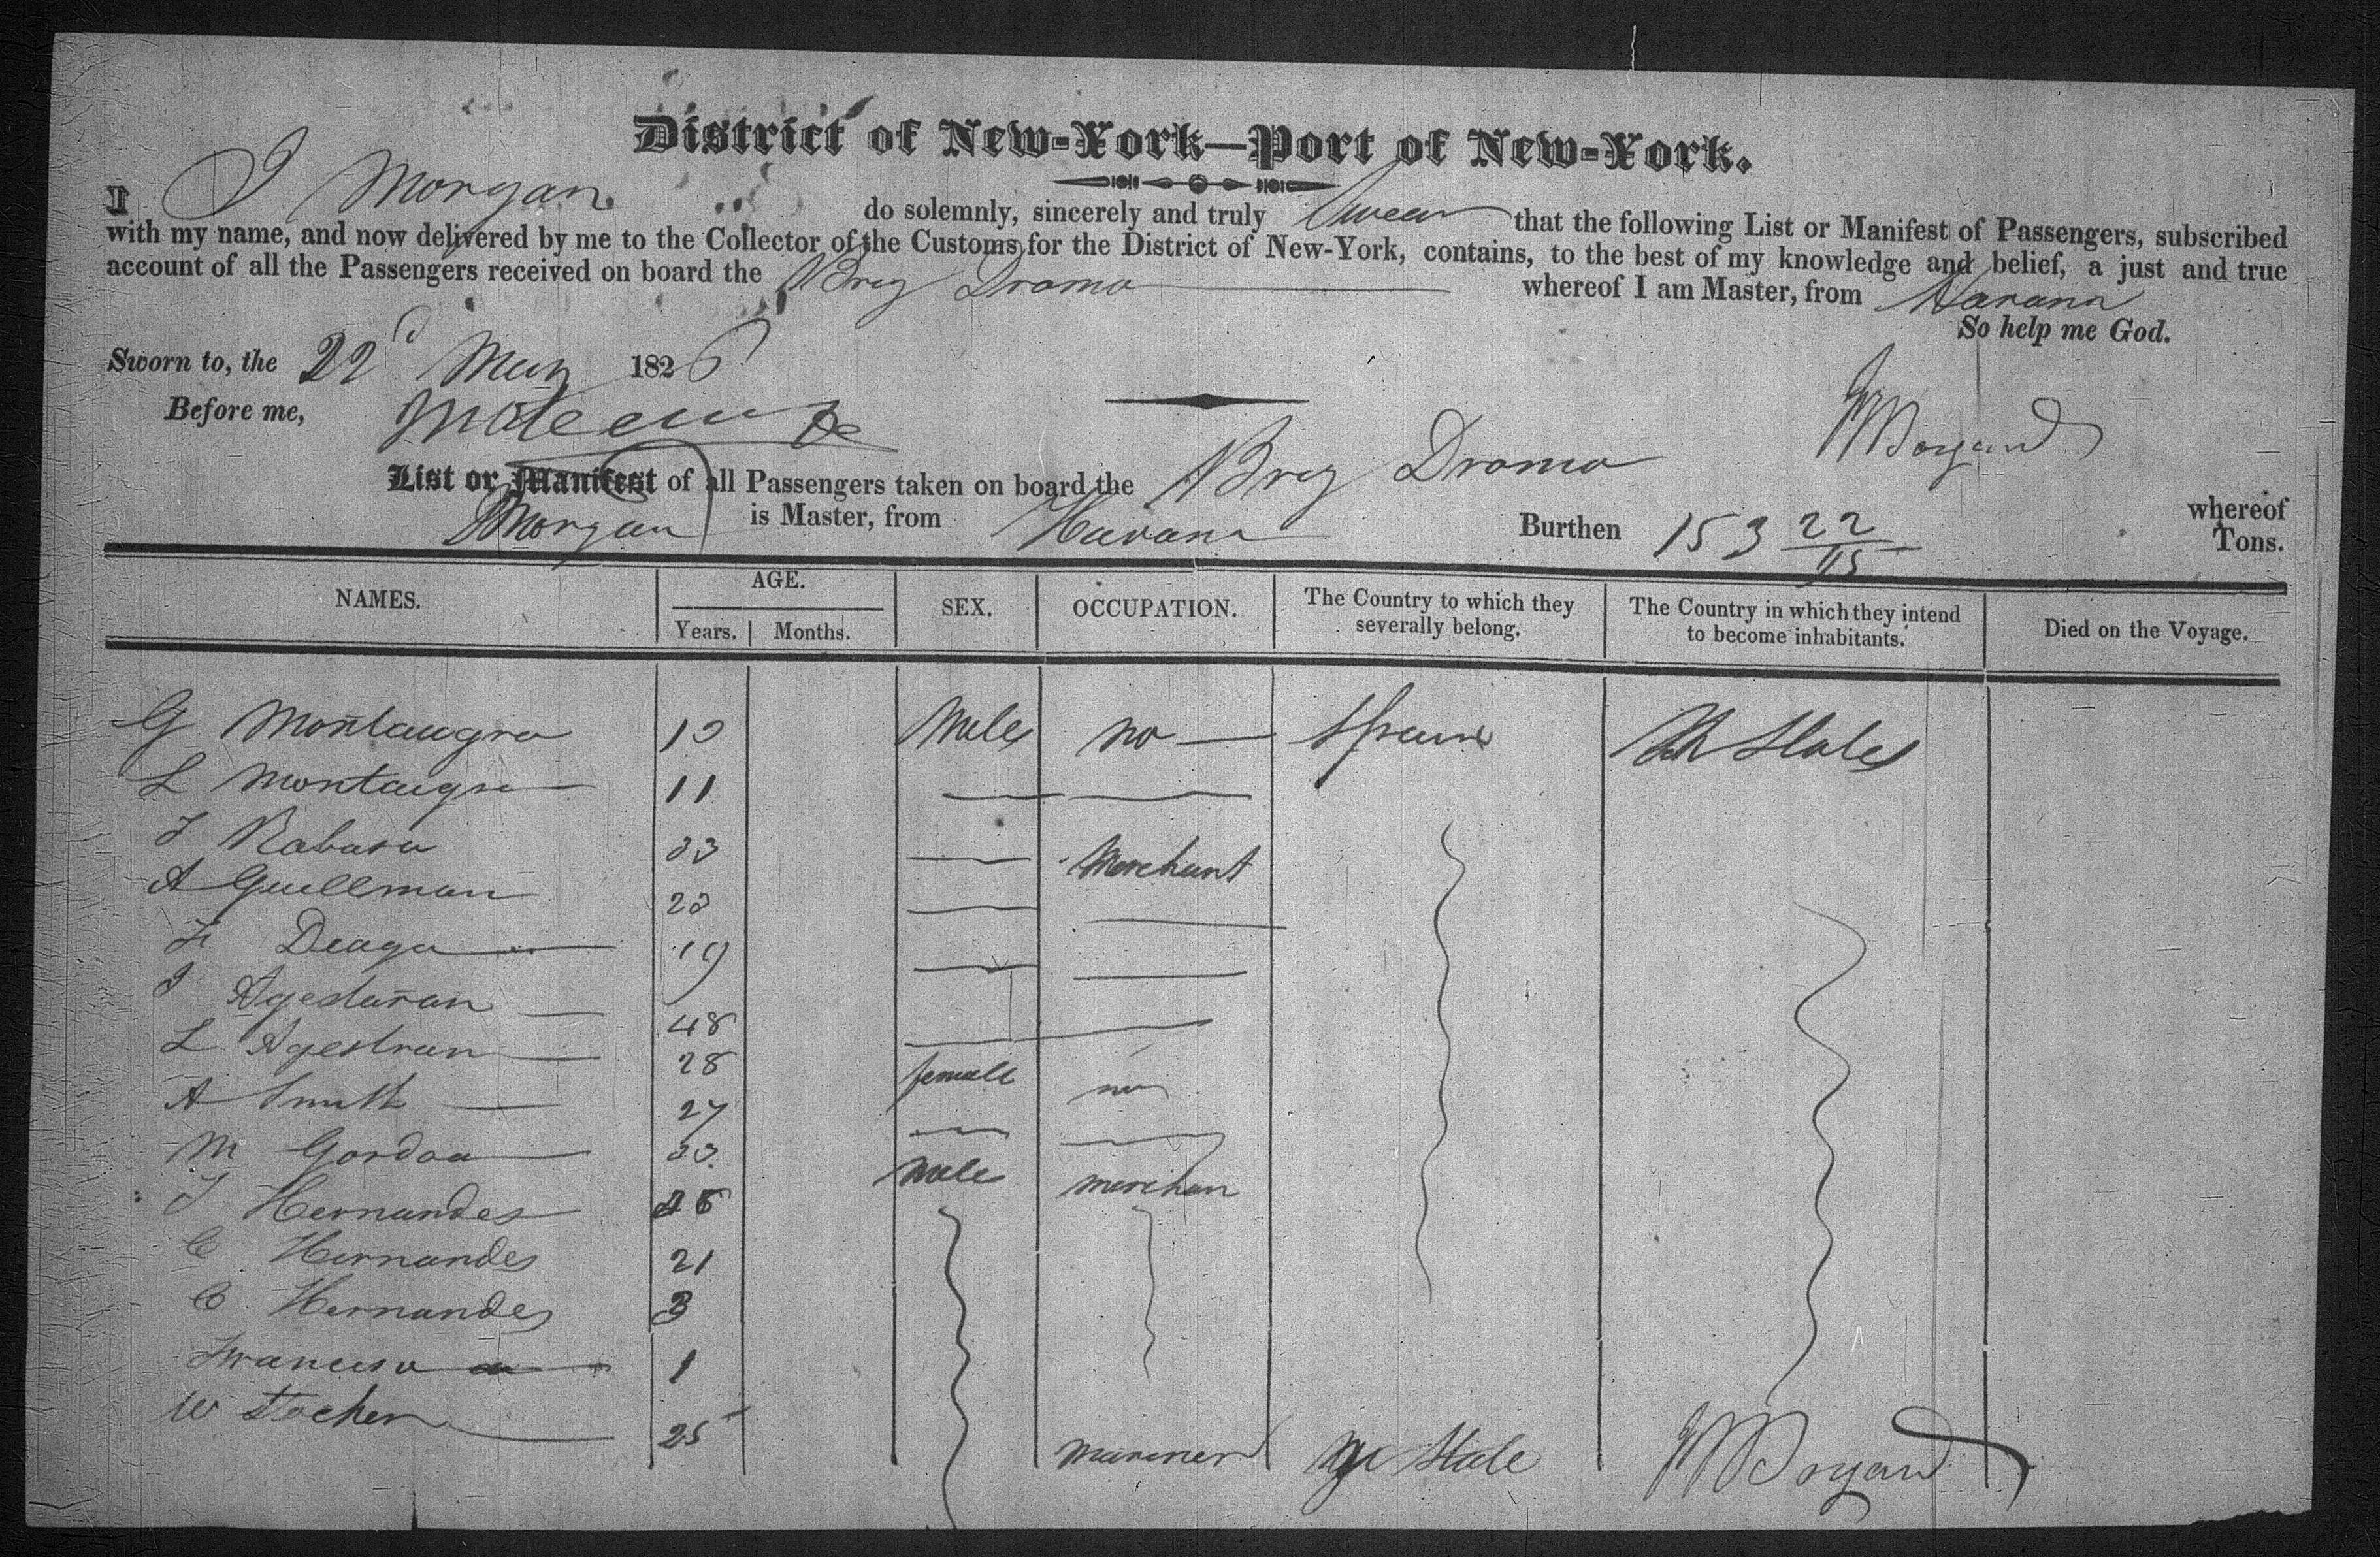 District of New-York—Port of New-York.
I J Morgan do solemnly, sincerely and truly swear that the following List or Manifest of Passengers, subscribed
with my name, and now delivered by me to the Collector of the Customs for the District of New-York, contains, to the best of my knowledge and belief, a just and true
account of all the Passengers received on board the Brig Droma whereof I am Master, from Havana
So help me God.
Sworn to, the 22d May 1826
Before me,
List or Manifest of all Passengers taken on board the Brig Droma whereof
Morgan is Master, from Havana Burthen 153 22/95 Tons.
NAMES. AGE. SEX. OCCUPATION. The Country to which they severally belong. The Country in which they intend to become inhabitants. Died on the Voyage.
Years. Months.
G Montaugra Male no Spain States
L Montaigra 11
J Rabasa 33 Merchant
A Guellman 23
F Deaga 19
J Agestaran 48
L Agestran 28 female no
A Smith 27
M Gordoa 33 Male merchan
J Hernandes 48
C Hernandes 21
C Hernandes 3
Francisco 1
W Stocker 25 mariner State